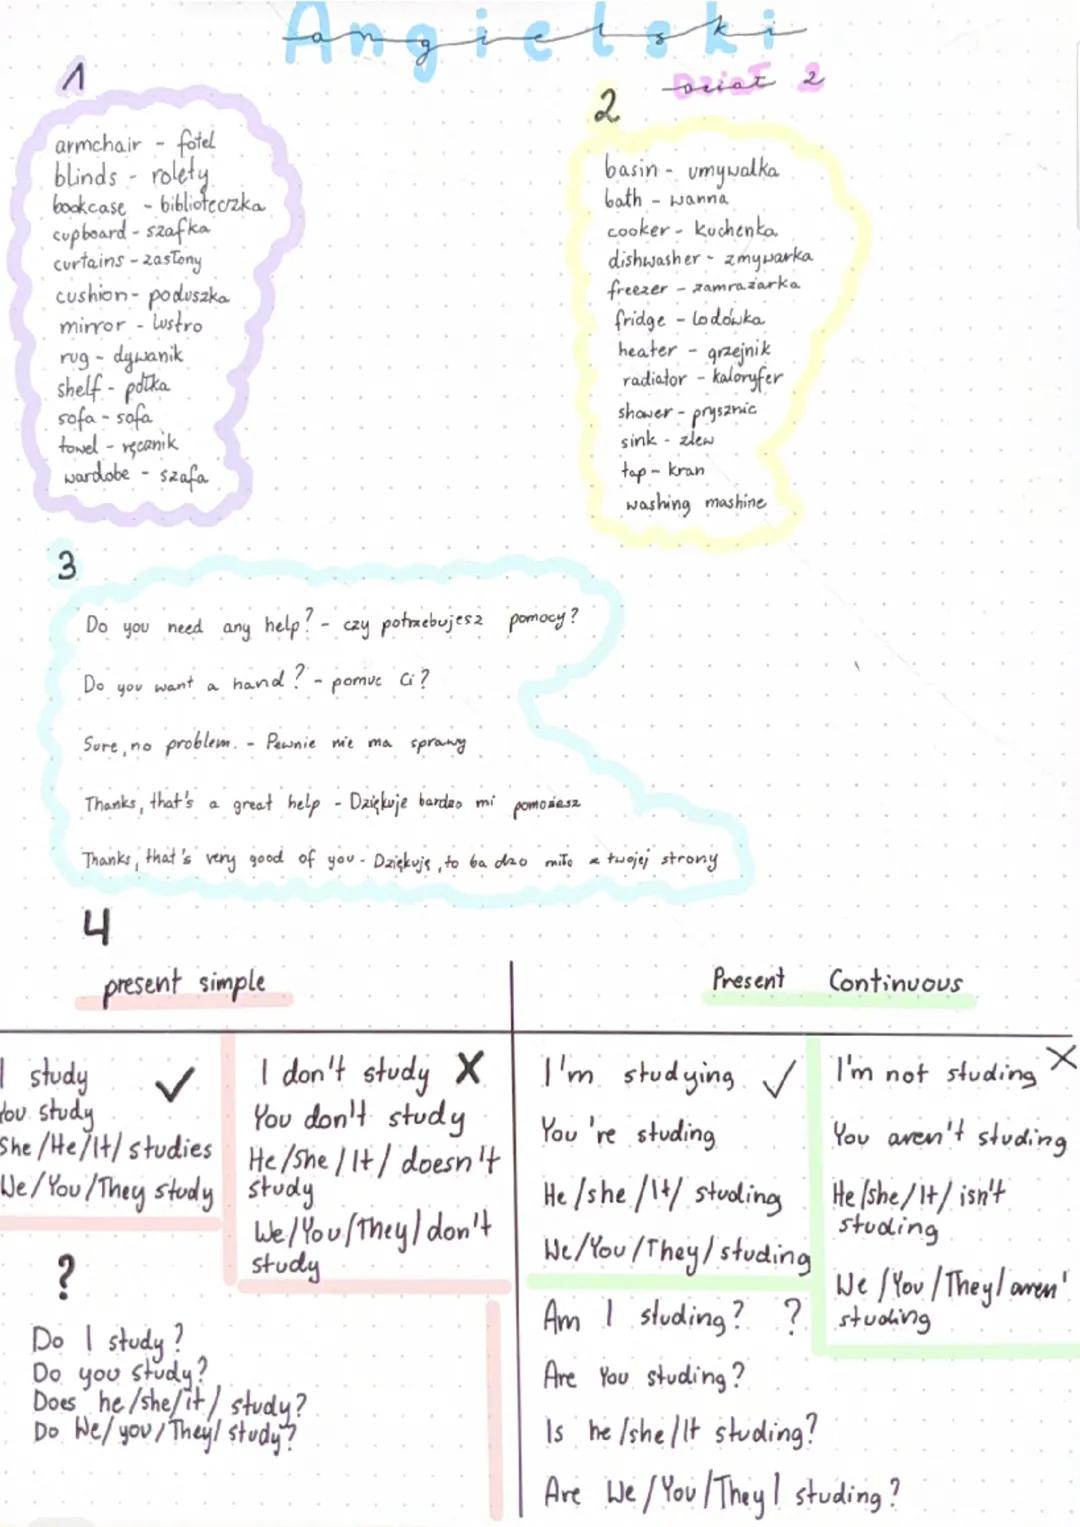 Angielski
Dział 2
1
armchair - fotel
blinds - rolety
bookcase - biblioteczka
cupboard - szafka
curtains - zasłony
cushion - poduszka
mirror - lustro
rug - dywanik
shelf - półka
sofa - sofa
towel - ręcznik
wardobe - szafa
2
basin - umywalka
bath - wanna
cooker - kuchenka
dishwasher - zmywarka
freezer - zamrażarka
fridge - lodówka
heater - grzejnik
radiator - kaloryfer
shower - prysznic
sink - zlew
tap - kran
washing mashine
3
Do you need any help? - czy potrzebujesz pomocy?
Do you want a hand? - pomuc Ci?
Sure, no problem. - Pewnie nie ma sprawy
Thanks, that's a great help - Dziękuje bardzo mi pomożesz
Thanks, that's very good of you - Dziękuję, to ba dzo miło z twojej strony
4
present simple
I study ✓
You study
She/He/It/ studies
We/You/They study
I don't study X
You don't study
He/She/It/ doesn't
study
We/You/They/ don't
study
?
Do I study?
Do you study?
Does he/she/it/ study?
Do We/you/They/ study?
Present Continuous
I'm studying ✓
You're studing
He/she/It/ studing
We/You/They/ studing
I'm not studing X
You aren't studing
He/she/It/ isn't
studing
We/You/They/ aren'
studing
Am I studing? ?
Are You studing?
Is he/she/It studing?
Are We/You/They/ studing?